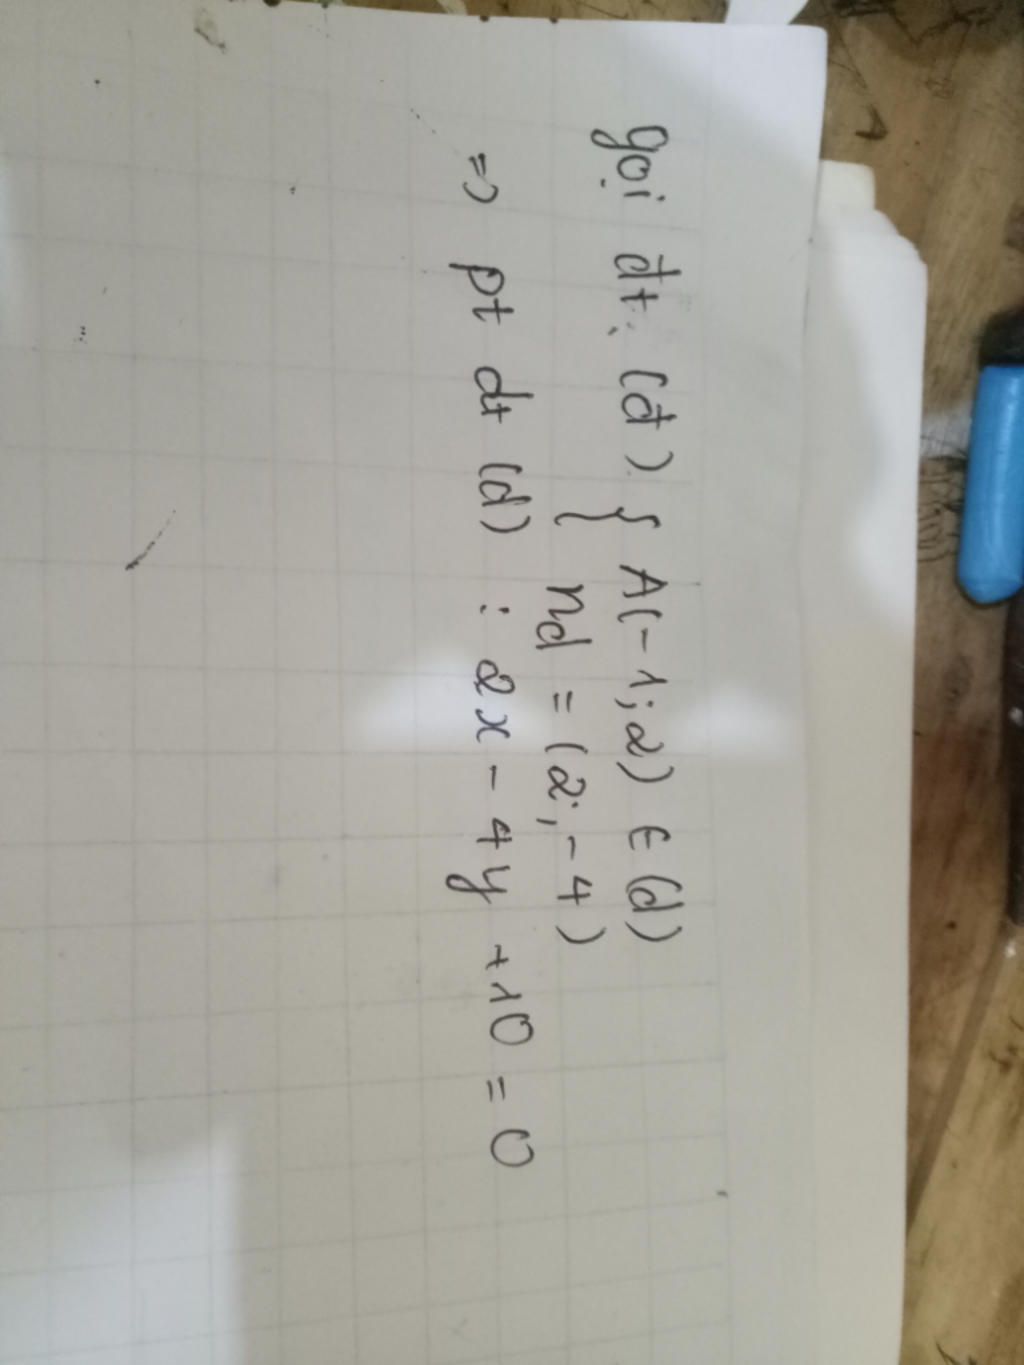 gọi đt: (đ) { A(-1; 2) ∈ (d)
nd = (2; -4)
=> pt dt (d) : 2x - 4y + 10 = 0